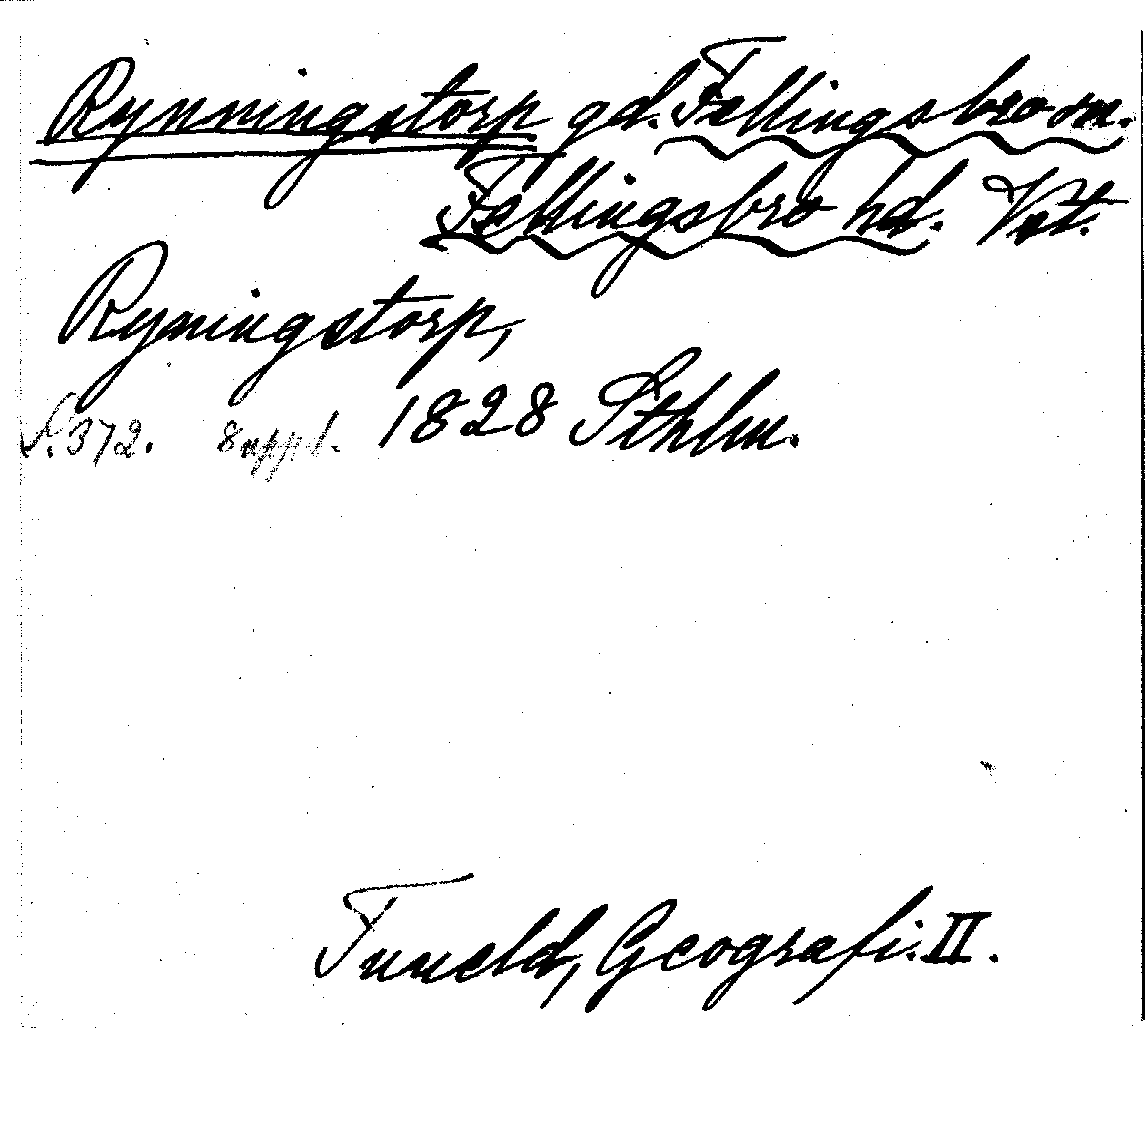 Rynningstorp gd. Fellingsbro sn.
Fellingsbro hd. Vst.
Ryningstorp,
S. 372. Suppl. 1828 Sthlm.
Tuneld, Geografi. II.